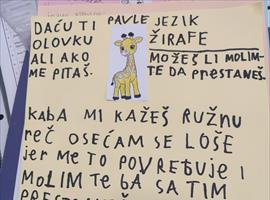 DAĆU TI PAVLE JEZIK
OLOVKU ŽIRAFE
ALI AKO MOŽEŠ LI MOLIM-
ME PITAŠ. TE DA PRESTANEŠ.
KABA MI KAŽEŠ RUŽNU
REČ OSEĆAM SE LOŠE
jER ME TO POVREĐUJE I
MOLIM TE BA SA TIM